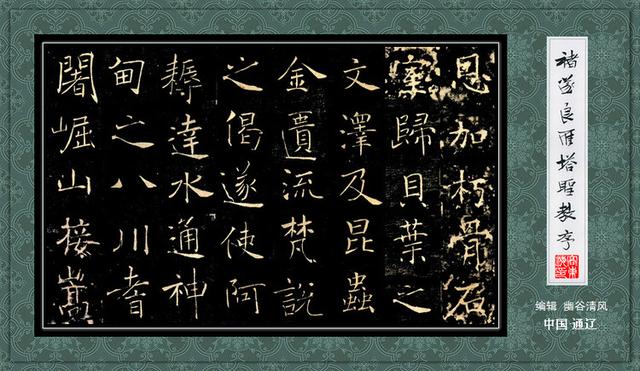 恩加朽骨石
室歸貝葉之
文澤及昆蟲
金匱流梵說
之偈遂使阿
耨達水通神
甸之八川耆
闍崛山接嵩
褚遂良雁塔聖教序
编辑 幽谷清风
中国·通辽